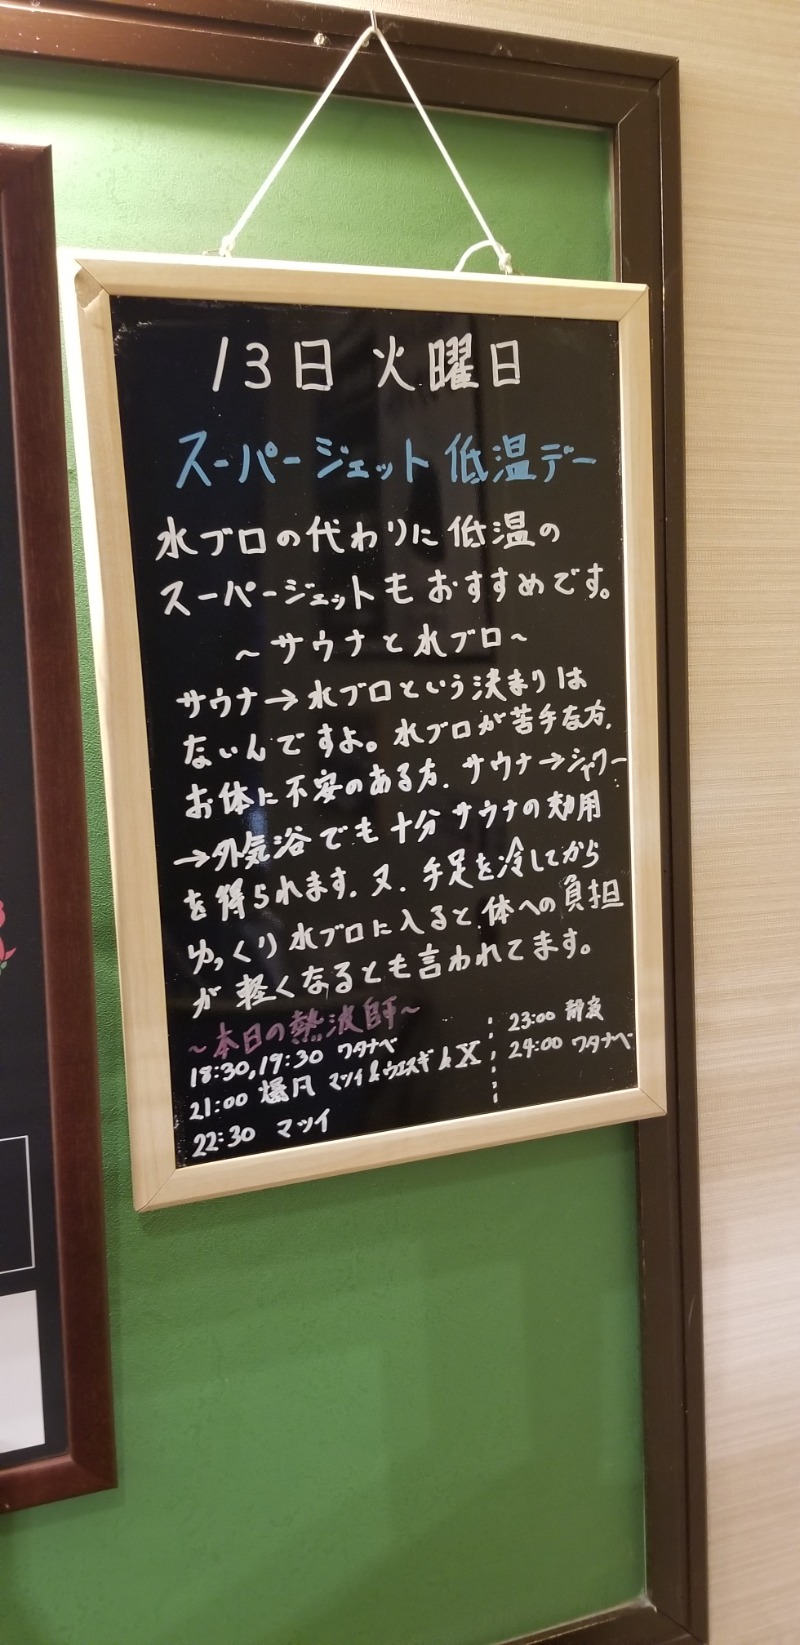 13日 火曜日
スーパージェット 低温デー
水ブロの代わりに低温の
スーパージェットもおすすめです。
~サウナと水ブロ~
サウナ→水ブロという決まりは
ないんですよ。水ブロが苦手な方.
お体に不安のある方.サウナ→シャワー
→外気浴でも十分サウナの効用
を得られます.又.手足を冷してから
ゆっくり水ブロに入ると.体への負担
が軽くなるとも言われてます。
~本日の熱波師~
18:30,19:30 ワタナベ
21:00 爆风 マツイ&ウエスギ&X
22:30 マツイ
23:00 静寂
24:00 ワタナベ